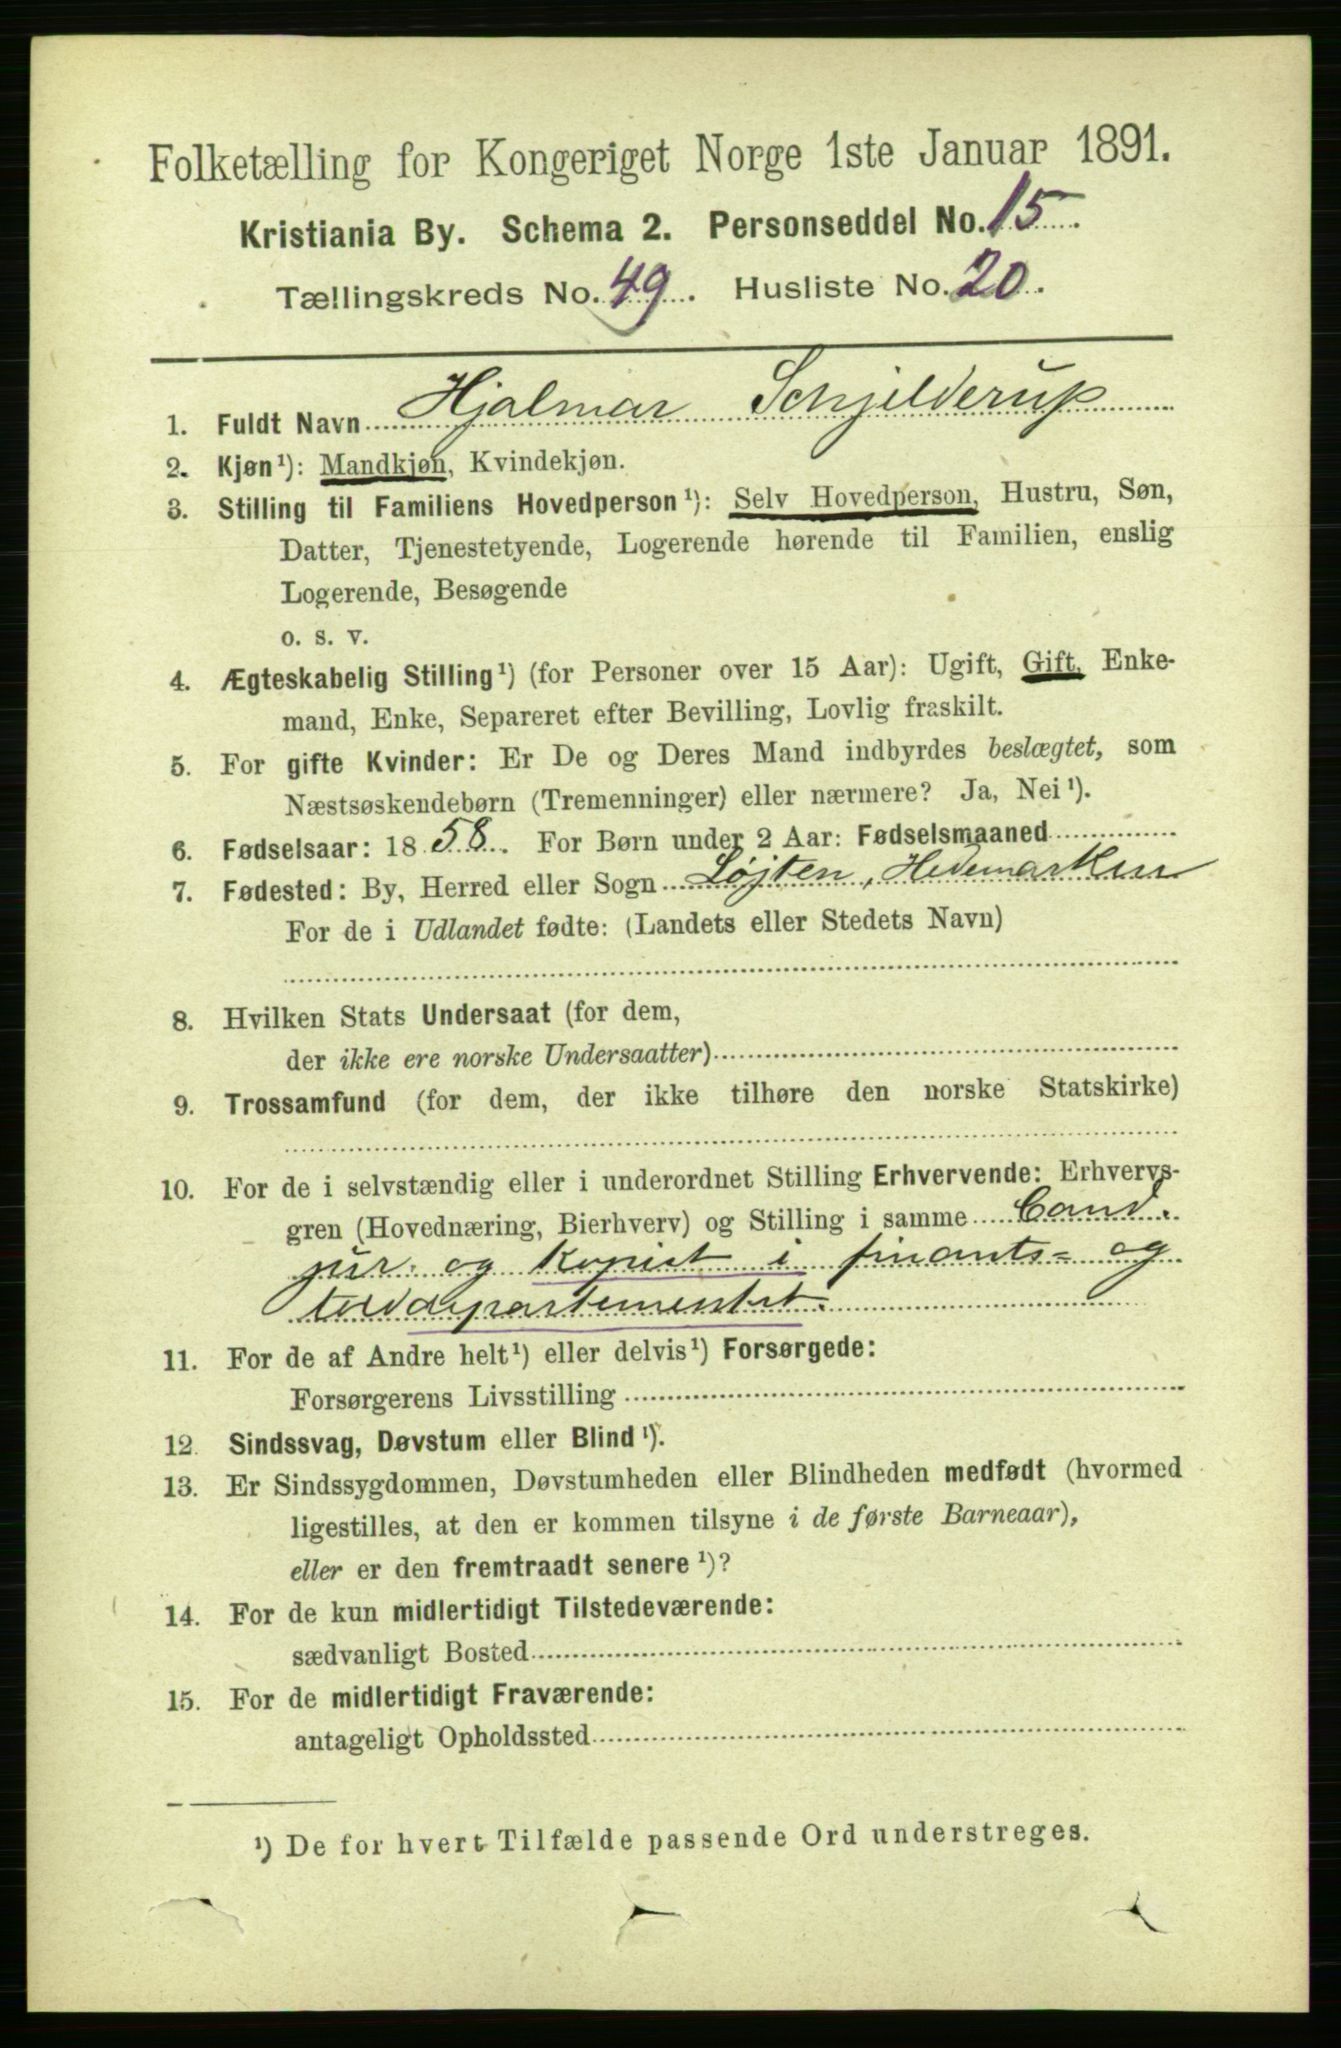 Folketælling for Kongeriget Norge 1ste Januar 1891.
Kristiania By. Schema 2. Personseddel No. 15.
Tællingskreds No. 49. Husliste No. 20.
1. Fuldt Navn Hjalmar Schjelderup
2. Kjøn¹): Mandkjøn, Kvindekjøn.
3. Stilling til Familiens Hovedperson¹): Selv Hovedperson, Hustru, Søn,
Datter, Tjenestetyende, Logerende hørende til Familien, enslig
Logerende, Besøgende
o. s. v.
4. Ægteskabelig Stilling¹) (for Personer over 15 Aar): Ugift, Gift, Enke-
mand, Enke, Separeret efter Bevilling, Lovlig fraskilt.
5. For gifte Kvinder: Er De og Deres Mand indbyrdes beslægtet, som
Næstsøskendebørn (Tremenninger) eller nærmere? Ja, Nei¹).
6. Fødselsaar: 1858. For Børn under 2 Aar: Fødselsmaaned
7. Fødested: By, Herred eller Sogn Løjten, Hedemarken
For de i Udlandet fødte: (Landets eller Stedets Navn)
8. Hvilken Stats Undersaat (for dem,
der ikke ere norske Undersaatter)
9. Trossamfund (for dem, der ikke tilhøre den norske Statskirke)
10. For de i selvstændig eller i underordnet Stilling Erhvervende: Erhvervs-
gren (Hovednæring, Bierhverv) og Stilling i samme Cand.
jur. og Kopist i finants- og
tolddepartementet.
11. For de af Andre helt¹) eller delvis¹) Forsørgede:
Forsørgerens Livsstilling
12. Sindssvag, Døvstum eller Blind¹).
13. Er Sindssygdommen, Døvstumheden eller Blindheden medfødt (hvormed
ligestilles, at den er kommen tilsyne i de første Barneaar),
eller er den fremtraadt senere¹)?
14. For de kun midlertidigt Tilstedeværende:
sædvanligt Bosted
15. For de midlertidigt Fraværende:
antageligt Opholdssted
¹) De for hvert Tilfælde passende Ord understreges.